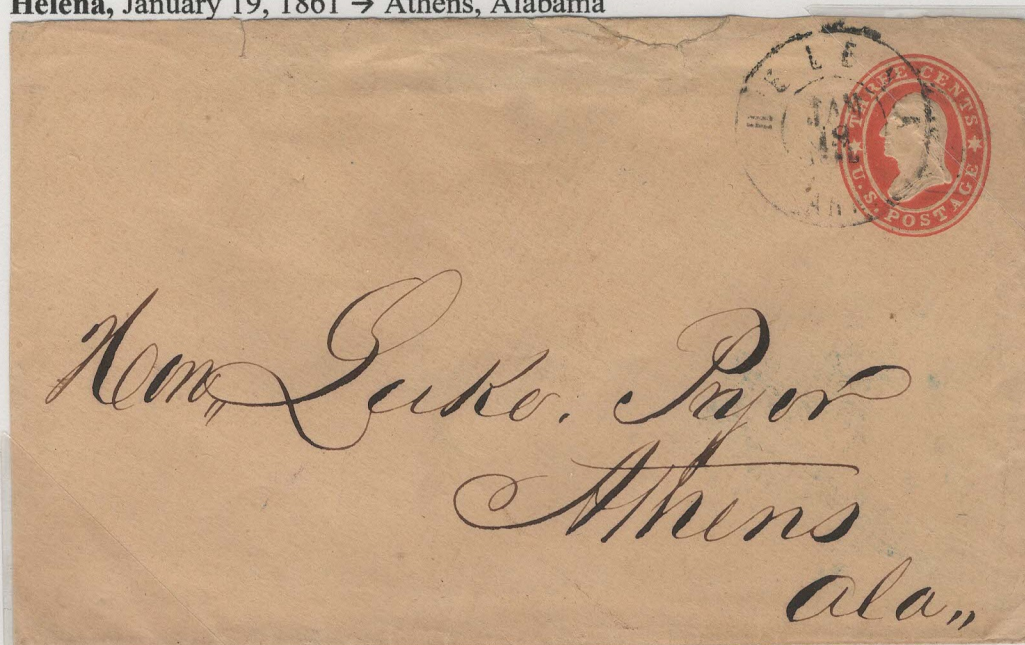 Helena, January 19, 1861 → Athens, Alabama
HELENA
JAN
ARK
THREE CENTS
U.S. POSTAGE
Hon,, Luke. Pryor
Athens
Ala,,